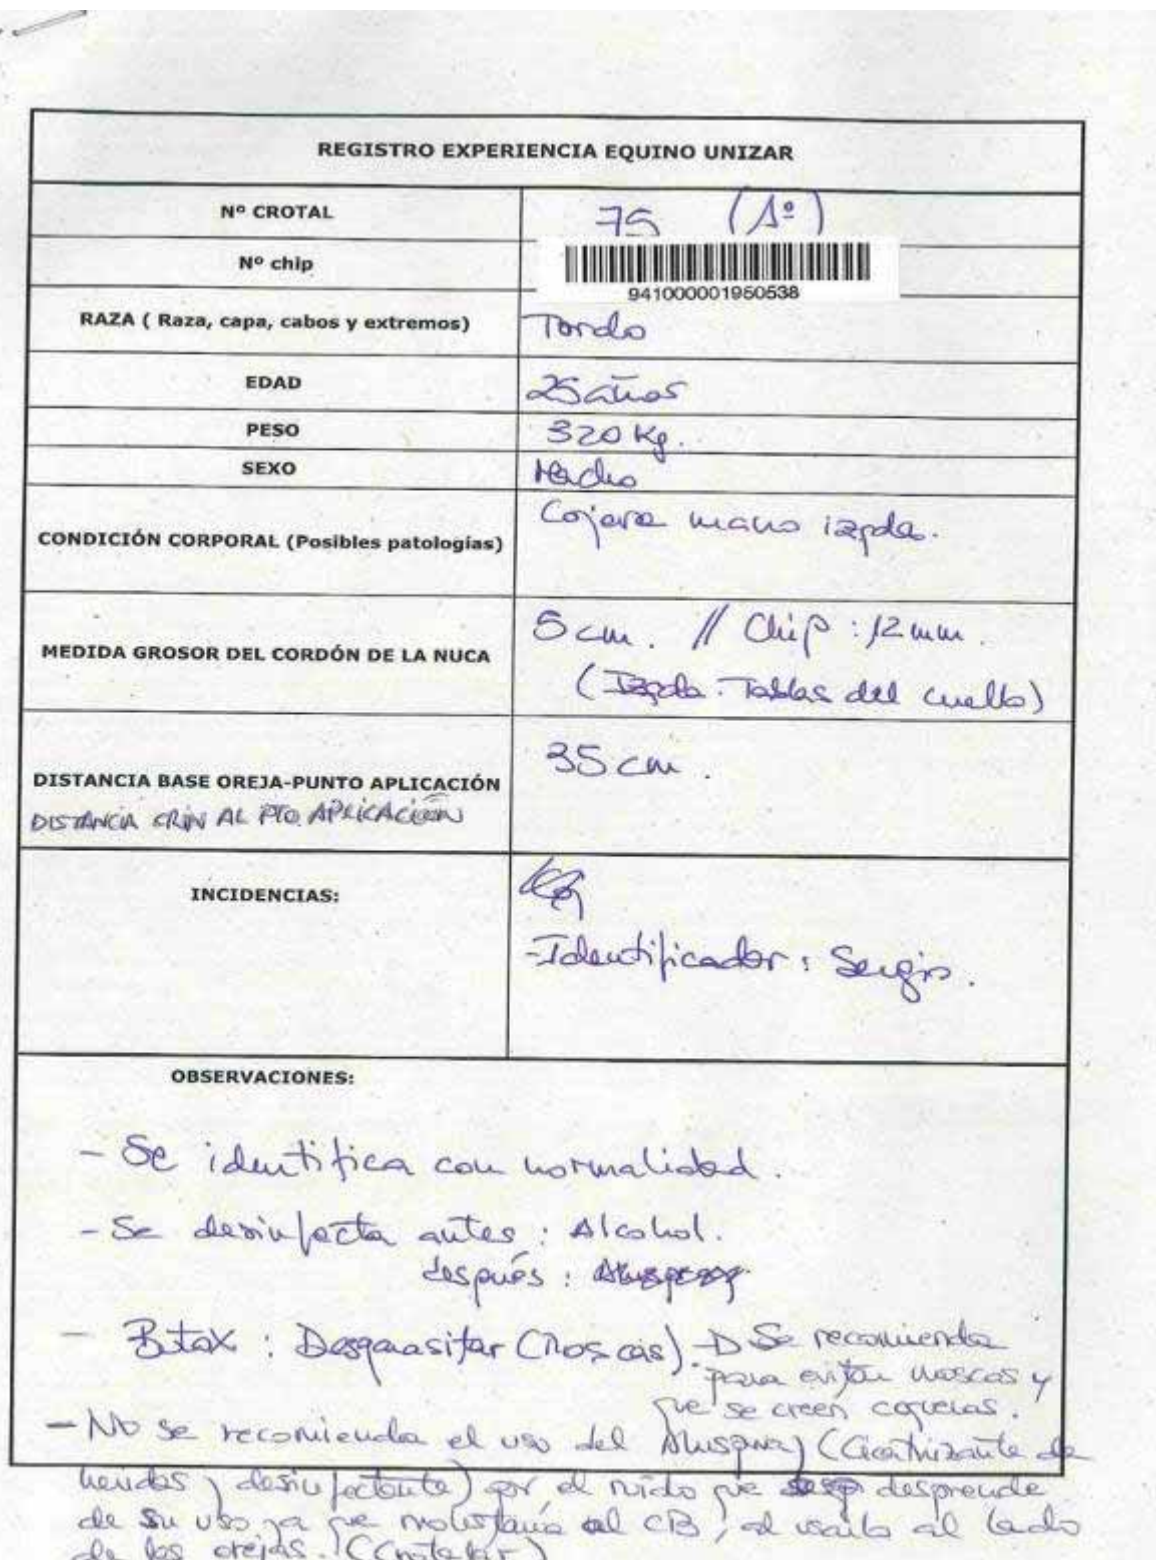 REGISTRO EXPERIENCIA EQUINO UNIZAR
Nº CROTAL 75 (1º)
Nº chip 941000001950538
RAZA ( Raza, capa, cabos y extremos) Tordo
EDAD 25 años
PESO 320 Kg.
SEXO Macho
CONDICIÓN CORPORAL (Posibles patologías) Cojera mano izqda.
MEDIDA GROSOR DEL CORDÓN DE LA NUCA 5 cm. // Chip : 12 mm.
(Izqda. Tablas del cuello)
DISTANCIA BASE OREJA-PUNTO APLICACIÓN 35 cm.
DISTANCIA CRIN AL PTO. APLICACIÓN
INCIDENCIAS:
-Identificador : Sergio.
OBSERVACIONES:
- Se identifica con normalidad.
- Se desinfecta antes : Alcohol.
después :
- Butox : Desparasitar (Moscas). Se recomienda
para evitar moscas y
que se creen coqueras.
- No se recomienda el uso del Alusspray (Cicatrizante de
heridas y desinfectante) por el ruido que desprende
de su uso ya que molestaría al CB, al usarlo al lado
de las orejas.